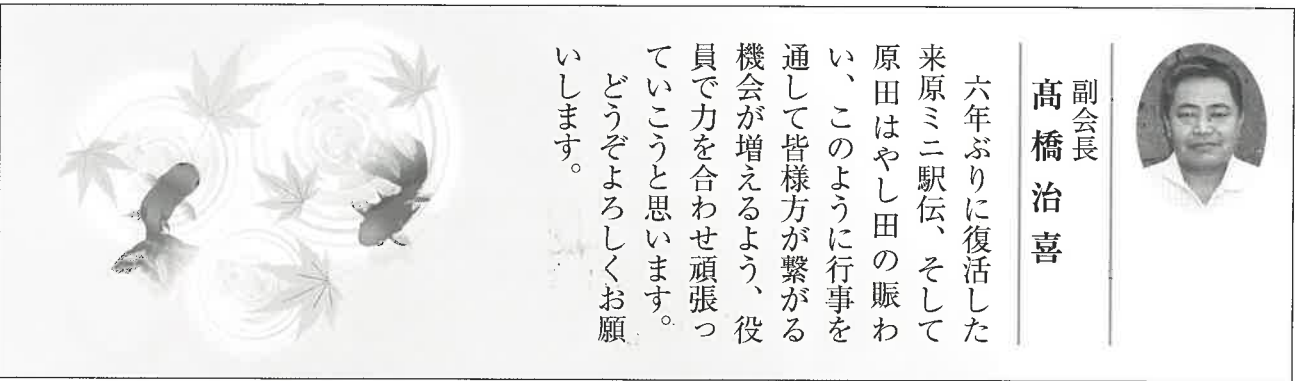 副会長
髙橋治喜
六年ぶりに復活した
来原ミニ駅伝、そして
原田はやし田の賑わ
い、このように行事を
通して皆様方が繋がる
機会が増えるよう、役
員で力を合わせ頑張っ
ていこうと思います。
どうぞよろしくお願
いします。